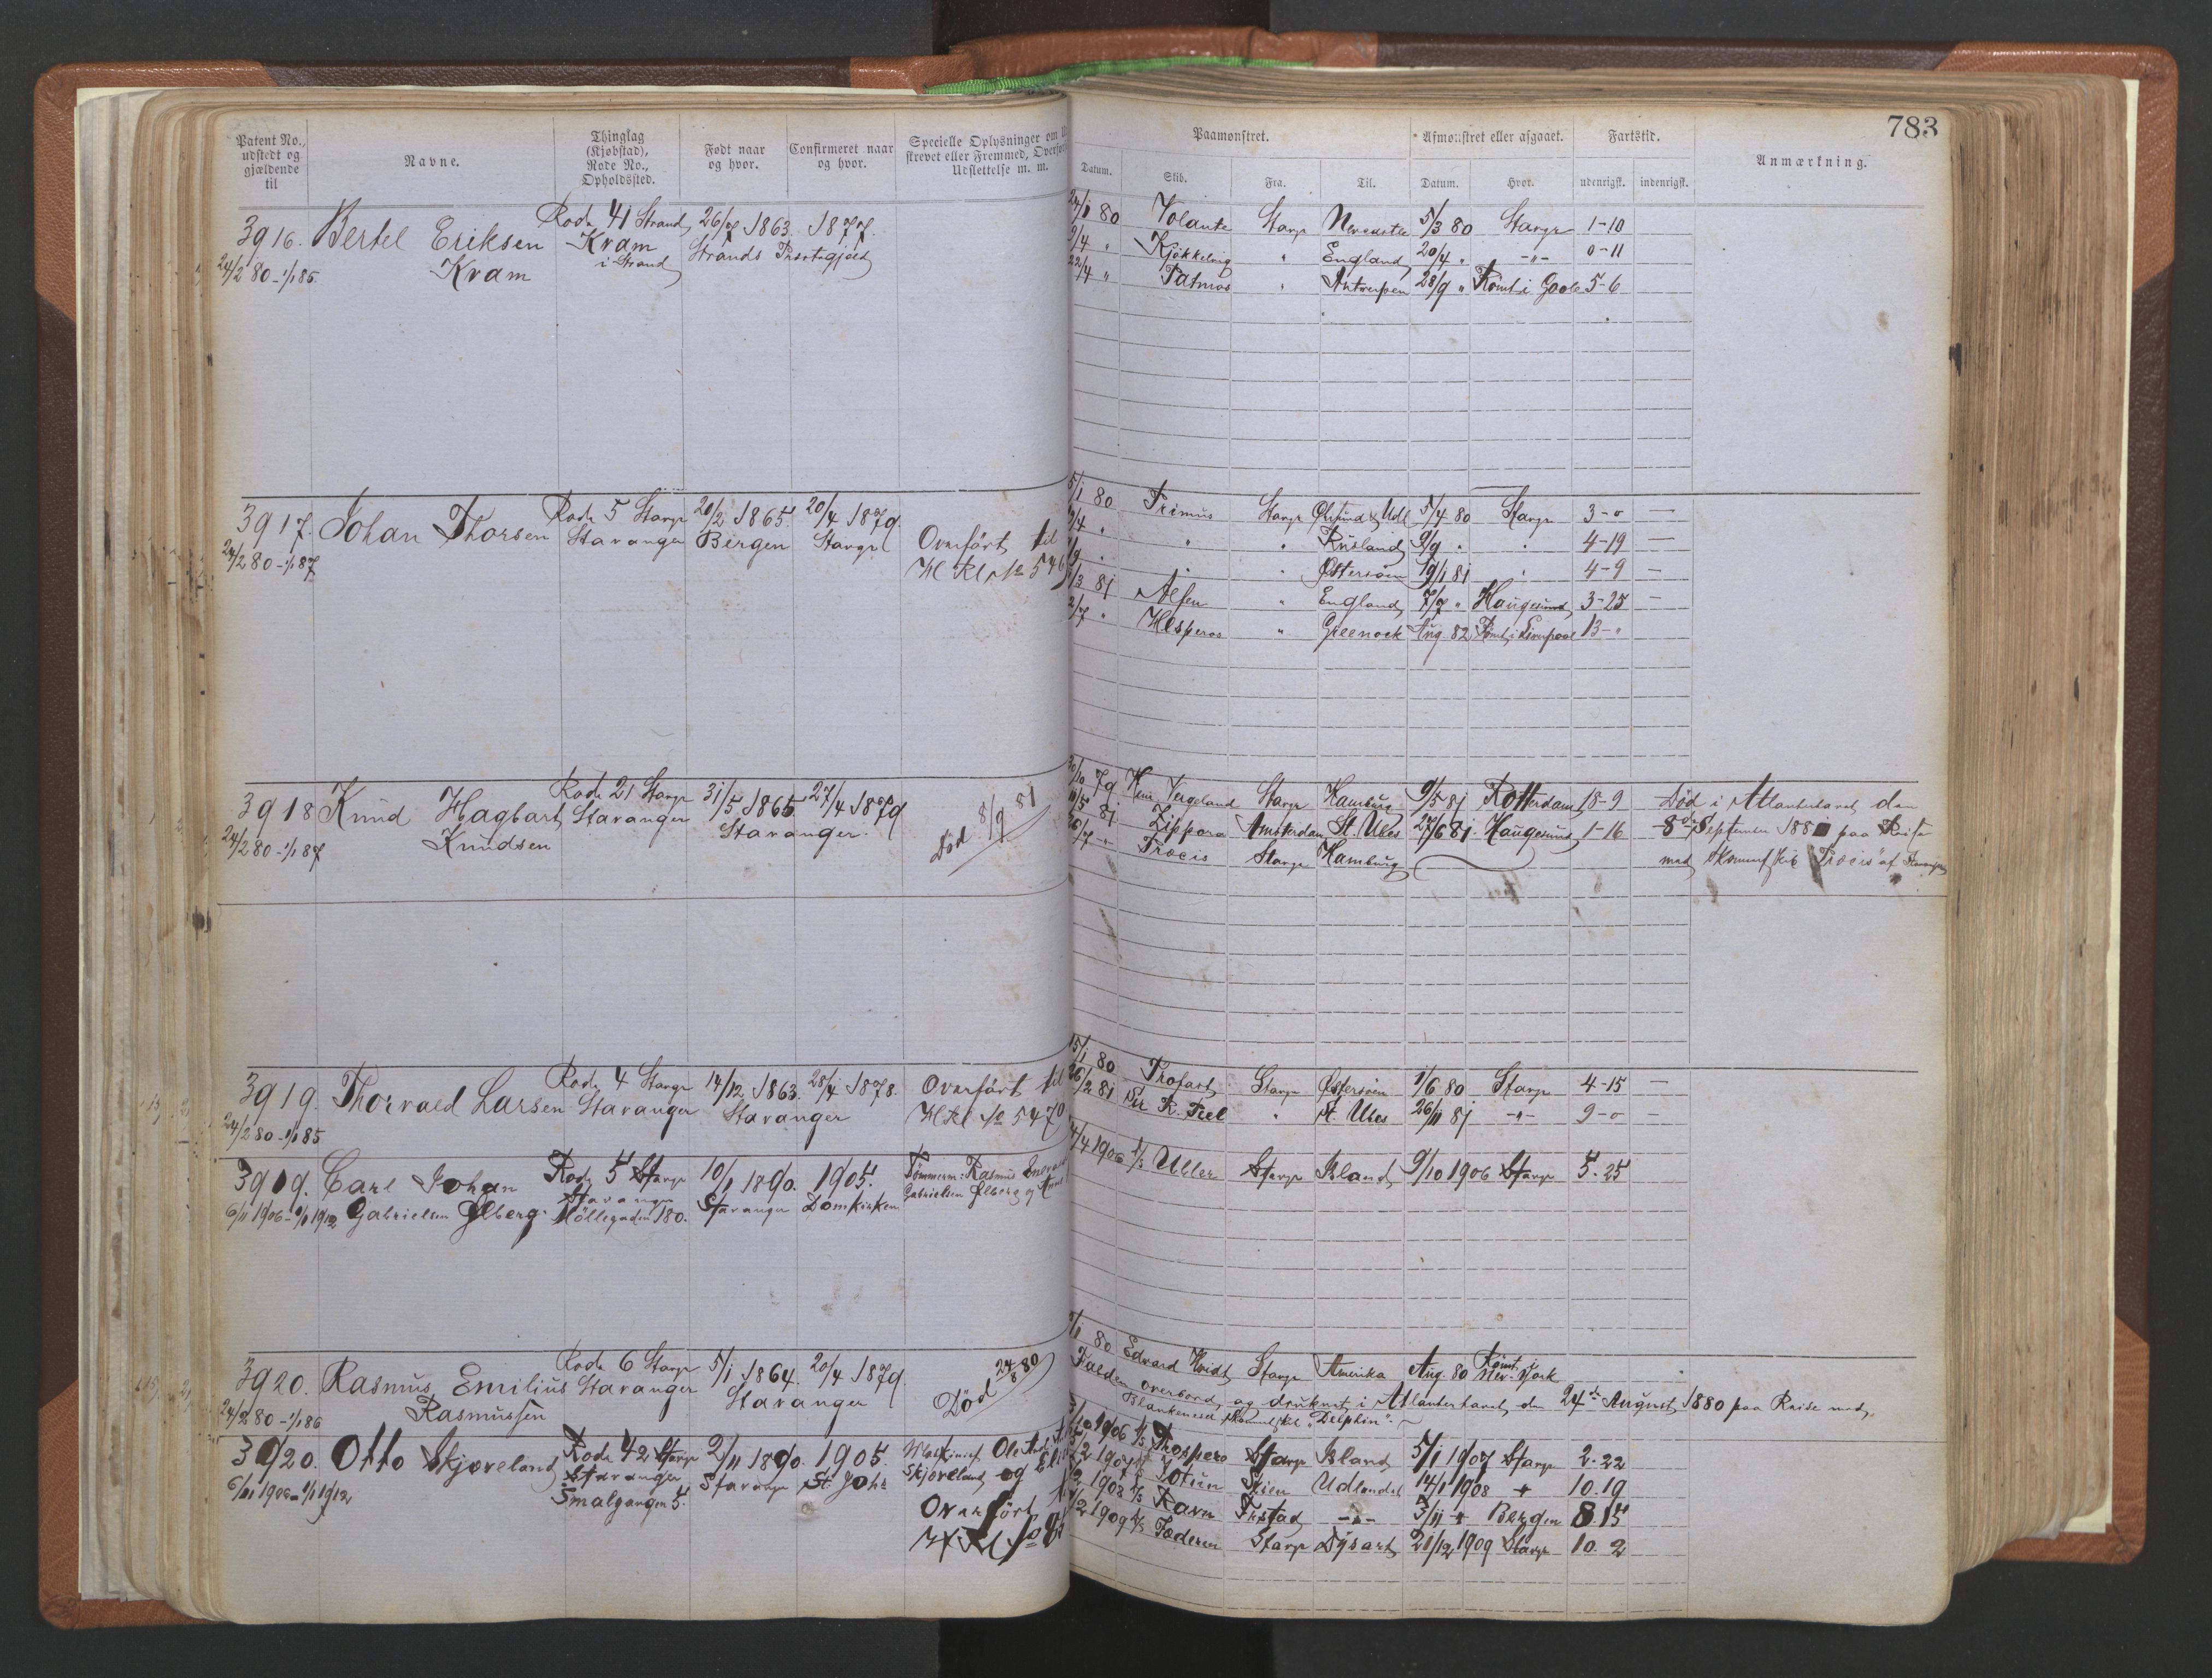 783
Patent No., udstedt og gjældende til
Navne.
Thinglag (Kjøbstad), Rode No., Opholdssted.
Født naar og hvor.
Confirmeret naar og hvor.
Specielle Oplysninger om
skrevet eller Fremmed, Overfør
Udslettelse m. m.
Paamønstret.
Afmønstret eller afgaaet.
Fartstid.
Anmærkning.
Datum. Skib. Fra. Til. Datum. Hvor. udenrigsk. indenrigsk.
3916. Bertel Eriksen Rode 41 Strand 26/7 1863. 1877.
24/2 80 - 1/1 85. Kvam Kvam i Strand Strands Præstegjeld
24/1 80 Volante Stavgr Newcastle 5/3 80 Stavgr 1-10
9/4 " Kjøkkelvig " England 20/4 " -"- 0-11
22/4 " Patmos " Antwerpen 28/9 " Rømt i Goole 5-6
3917. Johan Thorsen Rode 5 Stavgr 20/2 1865. 20/4 1879
24/2 80 - 1/1 87 Stavanger Bergen Stavgr Overført til
H Kl No 546
5/1 80 Primus Stavgr Øresund & Udl 5/4 80 Stavgr 3-0 —
9/4 " " " Rusland 9/9 " " 4-19 —
" " Østersøen 19/1 81 " 4-9 —
3/3 81 Alfen " England 7/7 " Haugesund 3-25 —
2/7 " Hesperos " Greenock Aug. 82 Rømt i Liverpool 13-"
3918 Knud Hagbart Rode 21 Stavgr 31/5 1865 27/4 1879
24/2 80 - 1/1 87 Knudsen Stavanger Stavanger. Død 8/9 81
30/10 79 Henr Vergeland Stavgr Hamburg 9/5 81 Rotterdam 18-9 Død i Atlanterhavet den
11/5 81 Zippora Amsterdam St. Ubes 27/6 81. Haugesund 1-16 8de September 188 paa Reise
26/7 -"- Præcis Stavgr Hamburg med Skonnertskib "Præcis" af Stavanger
3919. Thorvald Larsen Rode 4 Stavgr 14/12 1863. 28/4 1878. Overført til
24/2 80 - 1/1 85 Stavanger Stavanger H Kl No 5470
15/1 80 Trofast Stavgr Østersøen 1/6 80 Stavgr 4-15 —
26/2 81 Sir R. Peel " St. Ubes 26/11 81 -"- 9-0 —
3919. Carl Johan Rode 5 Stavgr 10/1 1890. 1905. Tømmerm: Rasmus
6/11 1906 - 1/1 1912 Gabrielsen Ølberg. Stavanger Møllegaden 180. Stavanger Domkirken Gabrielsen Ølberg og
4/4 1906 Uller Stavgr Island 9/10 1906 Stavgr 5.25
3920. Rasmus Emilius Rode 6 Stavgr 5/1 1864. 20/4 1879
24/2 80 - 1/1 86 Rasmussen Stavanger Stavanger Død 24/8 80
80 Edvard Hvidt Stavgr Amerika Aug. 80 Rømt i New-York
Falden overbord og druknet i Atlanterhavet den 24de August 1880 paa Reise med
Blankeneser Skonnertskib "Delphin".
3920. Otto Skjoreland Rode 42 Stavgr 2/11 1890. 1905.
6/11 1906 - 1/1 1912 Stavanger Smalgangen 5. Stavanger St. Johs Skjoreland og
Overført
H Kl No
1906 Prospero Stavgr Island 5/1 1907 Stavgr 2-22
2 1907 Jotun Skien Udlandet 14/1 1908 " 10.19
2 1908 Ravn Frstad -"- 3/11 " Bergen 8.15
2 1909 Jæderen Stavgr Dysart 21/12 1909 Stavgr 10.2